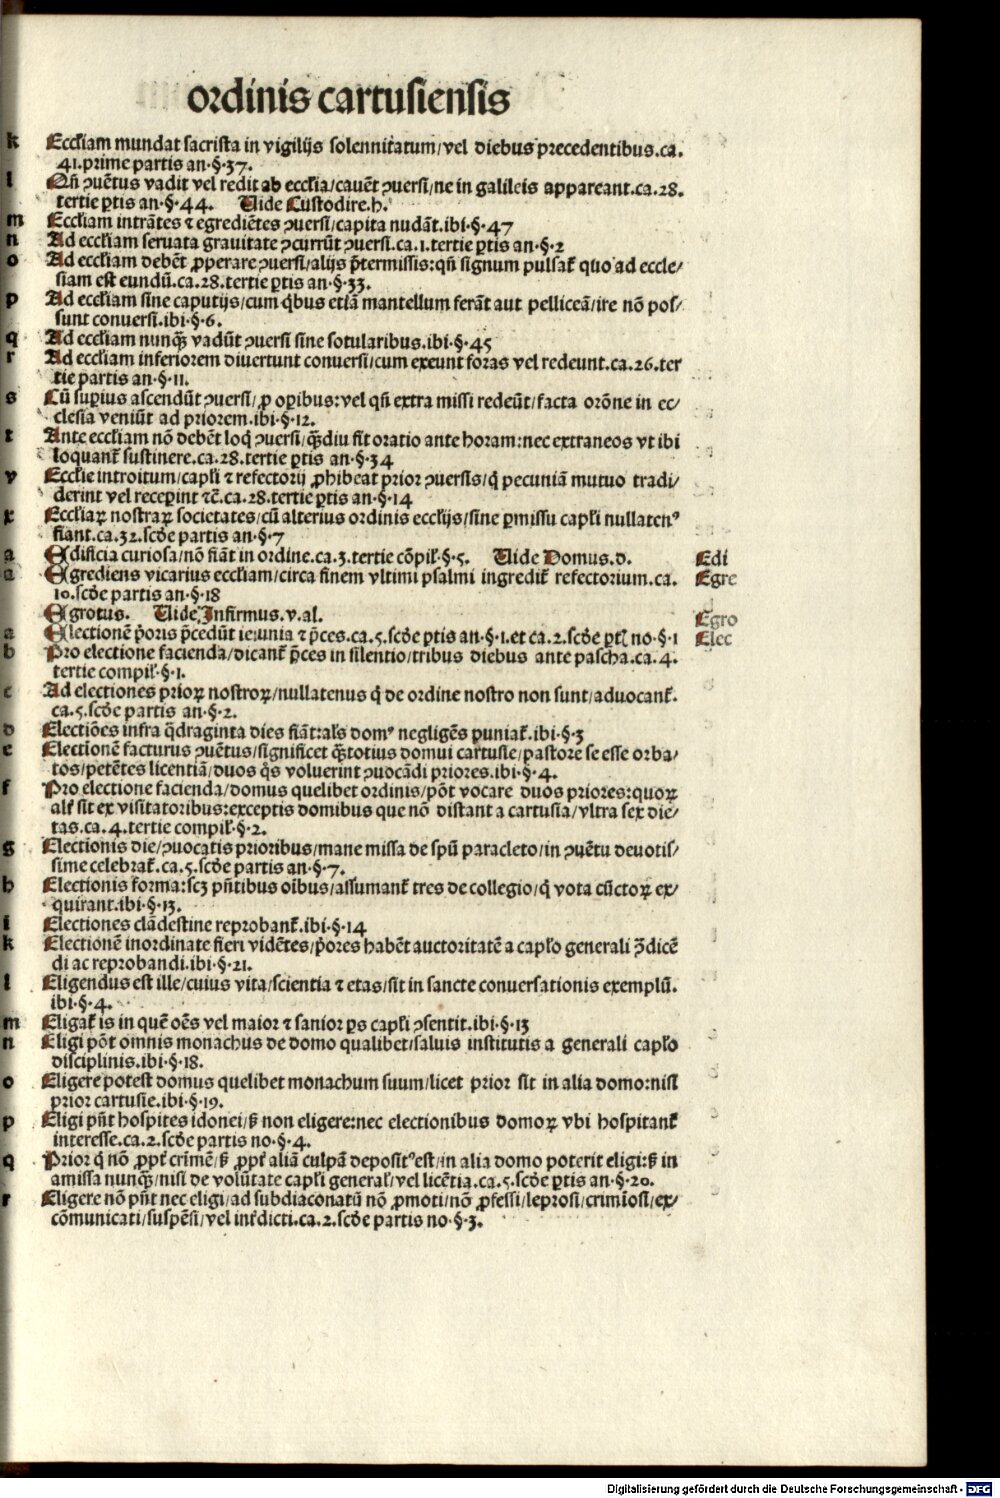 ordinis cartusiensis
k Ecclīam mundat sacrista in vigilijs solennitatum/vel diebus precedentibus.ca.
41.prime partis an.§.37.
l Qñ ꝯuētus vadit vel redit ab ecclīa/cauēt ꝯuersi/ne in galileis appareant.ca.28.
tertie ꝑtis an.§.44. Uide Custodire.h.
m Ecclīam intrātes ⁊ egrediētes ꝯuersi/capita nudāt.ibi.§.47
n Ad ecclīam seruata grauitate ꝯcurrūt ꝯuersi.ca.1.tertie ꝑtis an.§.2
o Ad ecclīam debēt ꝓperare ꝯuersi/alijs p̄termissis:qñ signum pulsat̄ quo ad eccle/
siam est eundū.ca.28.tertie ꝑtis an.§.33.
p Ad ecclīam sine caputijs/cum qbus etiā mantellum ferāt aut pelliceā/ire nō pos/
sunt conuersi.ibi.§.6.
q Ad ecclīam nunqȝ̄ vadūt ꝯuersi sine sotularibus.ibi.§.45
r Ad ecclīam inferiorem diuertunt conuersi/cum exeunt foras vel redeunt.ca.26.ter
tie partis an.§.11.
s Cū suꝑius ascendūt ꝯuersi/ꝓ oꝑibus:vel qñ extra missi redeūt/facta orōne in ec/
clesia veniūt ad priorem.ibi.§.12.
t Ante ecclīam nō debēt loq̇ ꝯuersi/qȝ̄diu fit oratio ante horam:nec extraneos vt ibi
loquant̄ sustinere.ca.28.tertie ꝑtis an.§.34
v Ecclīe introitum/capłi ⁊ refectorij ꝓhibeat prior ꝯuersis/q̇ pecuniā mutuo tradi/
derint vel receꝑint ⁊c̄.ca.28.tertie ꝑtis an.§.14
x Ecclīaꝝ nostraꝝ societates/cū alterius ordinis ecclījs/sine ꝑmissu capłi nullatenꝰ
fiant.ca.32.scd̄e partis an.§.7
a Edificia curiosa/nō fiāt in ordine.ca.3.tertie cōpil̄.§.5. Uide Domus.d. Edi
a Egrediens vicarius ecclīam/circa finem vltimi psalmi ingredit̄ refectorium.ca. Egre
10.scd̄e partis an.§.18
Egrotus. Uide Infirmus.v.al. Egro
a Electionē p̄oris p̄cedūt ieiunia ⁊ p̄ces.ca.5.scd̄e ꝑtis an.§.1.et ca.2.scd̄e ꝑtꝭ no.§.1 Elec
b Pro electione facienda/dicant̄ p̄ces in silentio/tribus diebus ante pascha.ca.4.
tertie compil̄.§.1.
c Ad electiones prioꝝ nostroꝝ/nullatenus q̇ de ordine nostro non sunt/aduocant̄.
ca.5.scd̄e partis an.§.2.
d Electiōes infra q̄draginta dies fiāt:als̄ domꝰ negligēs puniat̄.ibi.§.3
e Electionē facturus ꝯuētus/significet qȝ̄totius domui cartusie/pastore se esse orba/
tos/petētes licentiā/duos q̇s voluerint ꝯuocādi priores.ibi.§.4.
f Pro electione facienda/domus quelibet ordinis/pōt vocare duos priores:quoꝝ
alt̄ sit ex visitatoribus:exceptis domibus que nō distant a cartusia/vltra sex die/
tas.ca.4.tertie compil̄.§.2.
g Electionis die/ꝯuocatis prioribus/mane missa de spū paracleto/in ꝯuētu deuotis/
sime celebrat̄.ca.5.scd̄e partis an.§.7.
h Electionis forma:scȝ pñtibus oībus/assumant̄ tres de collegio/q̇ vota cūctoꝝ ex/
quirant.ibi.§.13.
i Electiones clādestine reprobant̄.ibi.§.14
k Electionē inordinate fieri vidētes/p̄ores habēt auctoritatē a capło generali ꝯ̄dicē
di ac reprobandi.ibi.§.21.
l Eligendus est ille/cuius vita/scientia ⁊ etas/sit in sancte conuersationis exemplū.
ibi.§.4.
m Eligat̄ is in quē oēs vel maior ⁊ sanior ꝑs capłi ꝯsentit.ibi.§.13
n Eligi pōt omnis monachus de domo qualibet/saluis institutis a generali capło
disciplinis.ibi.§.18.
o Eligere potest domus quelibet monachum suum/licet prior sit in alia domo:nisi
prior cartusie.ibi.§.19.
p Eligi pñt hospites idonei/sȝ non eligere:nec electionibus domoꝝ vbi hospitant̄
interesse.ca.2.scd̄e partis no.§.4.
q Prior q̇ nō ꝓpt̄ crimē/sȝ ꝓpt̄ aliā culpā depositꝰ est/in alia domo poterit eligi:sȝ in
amissa nunqȝ̄/nisi de volūtate capłi general̄/vel licētia.ca.5.scd̄e ꝑtis an.§.20.
r Eligere nō pñt nec eligi/ad subdiaconatū nō ꝓmoti/nō ꝓfessi/leprosi/crimīosi/ex/
cōmunicati/suspēsi/vel int̄dicti.ca.2.scd̄e partis no.§.3.
Digitalisierung gefördert durch die Deutsche Forschungsgemeinschaft - DFG